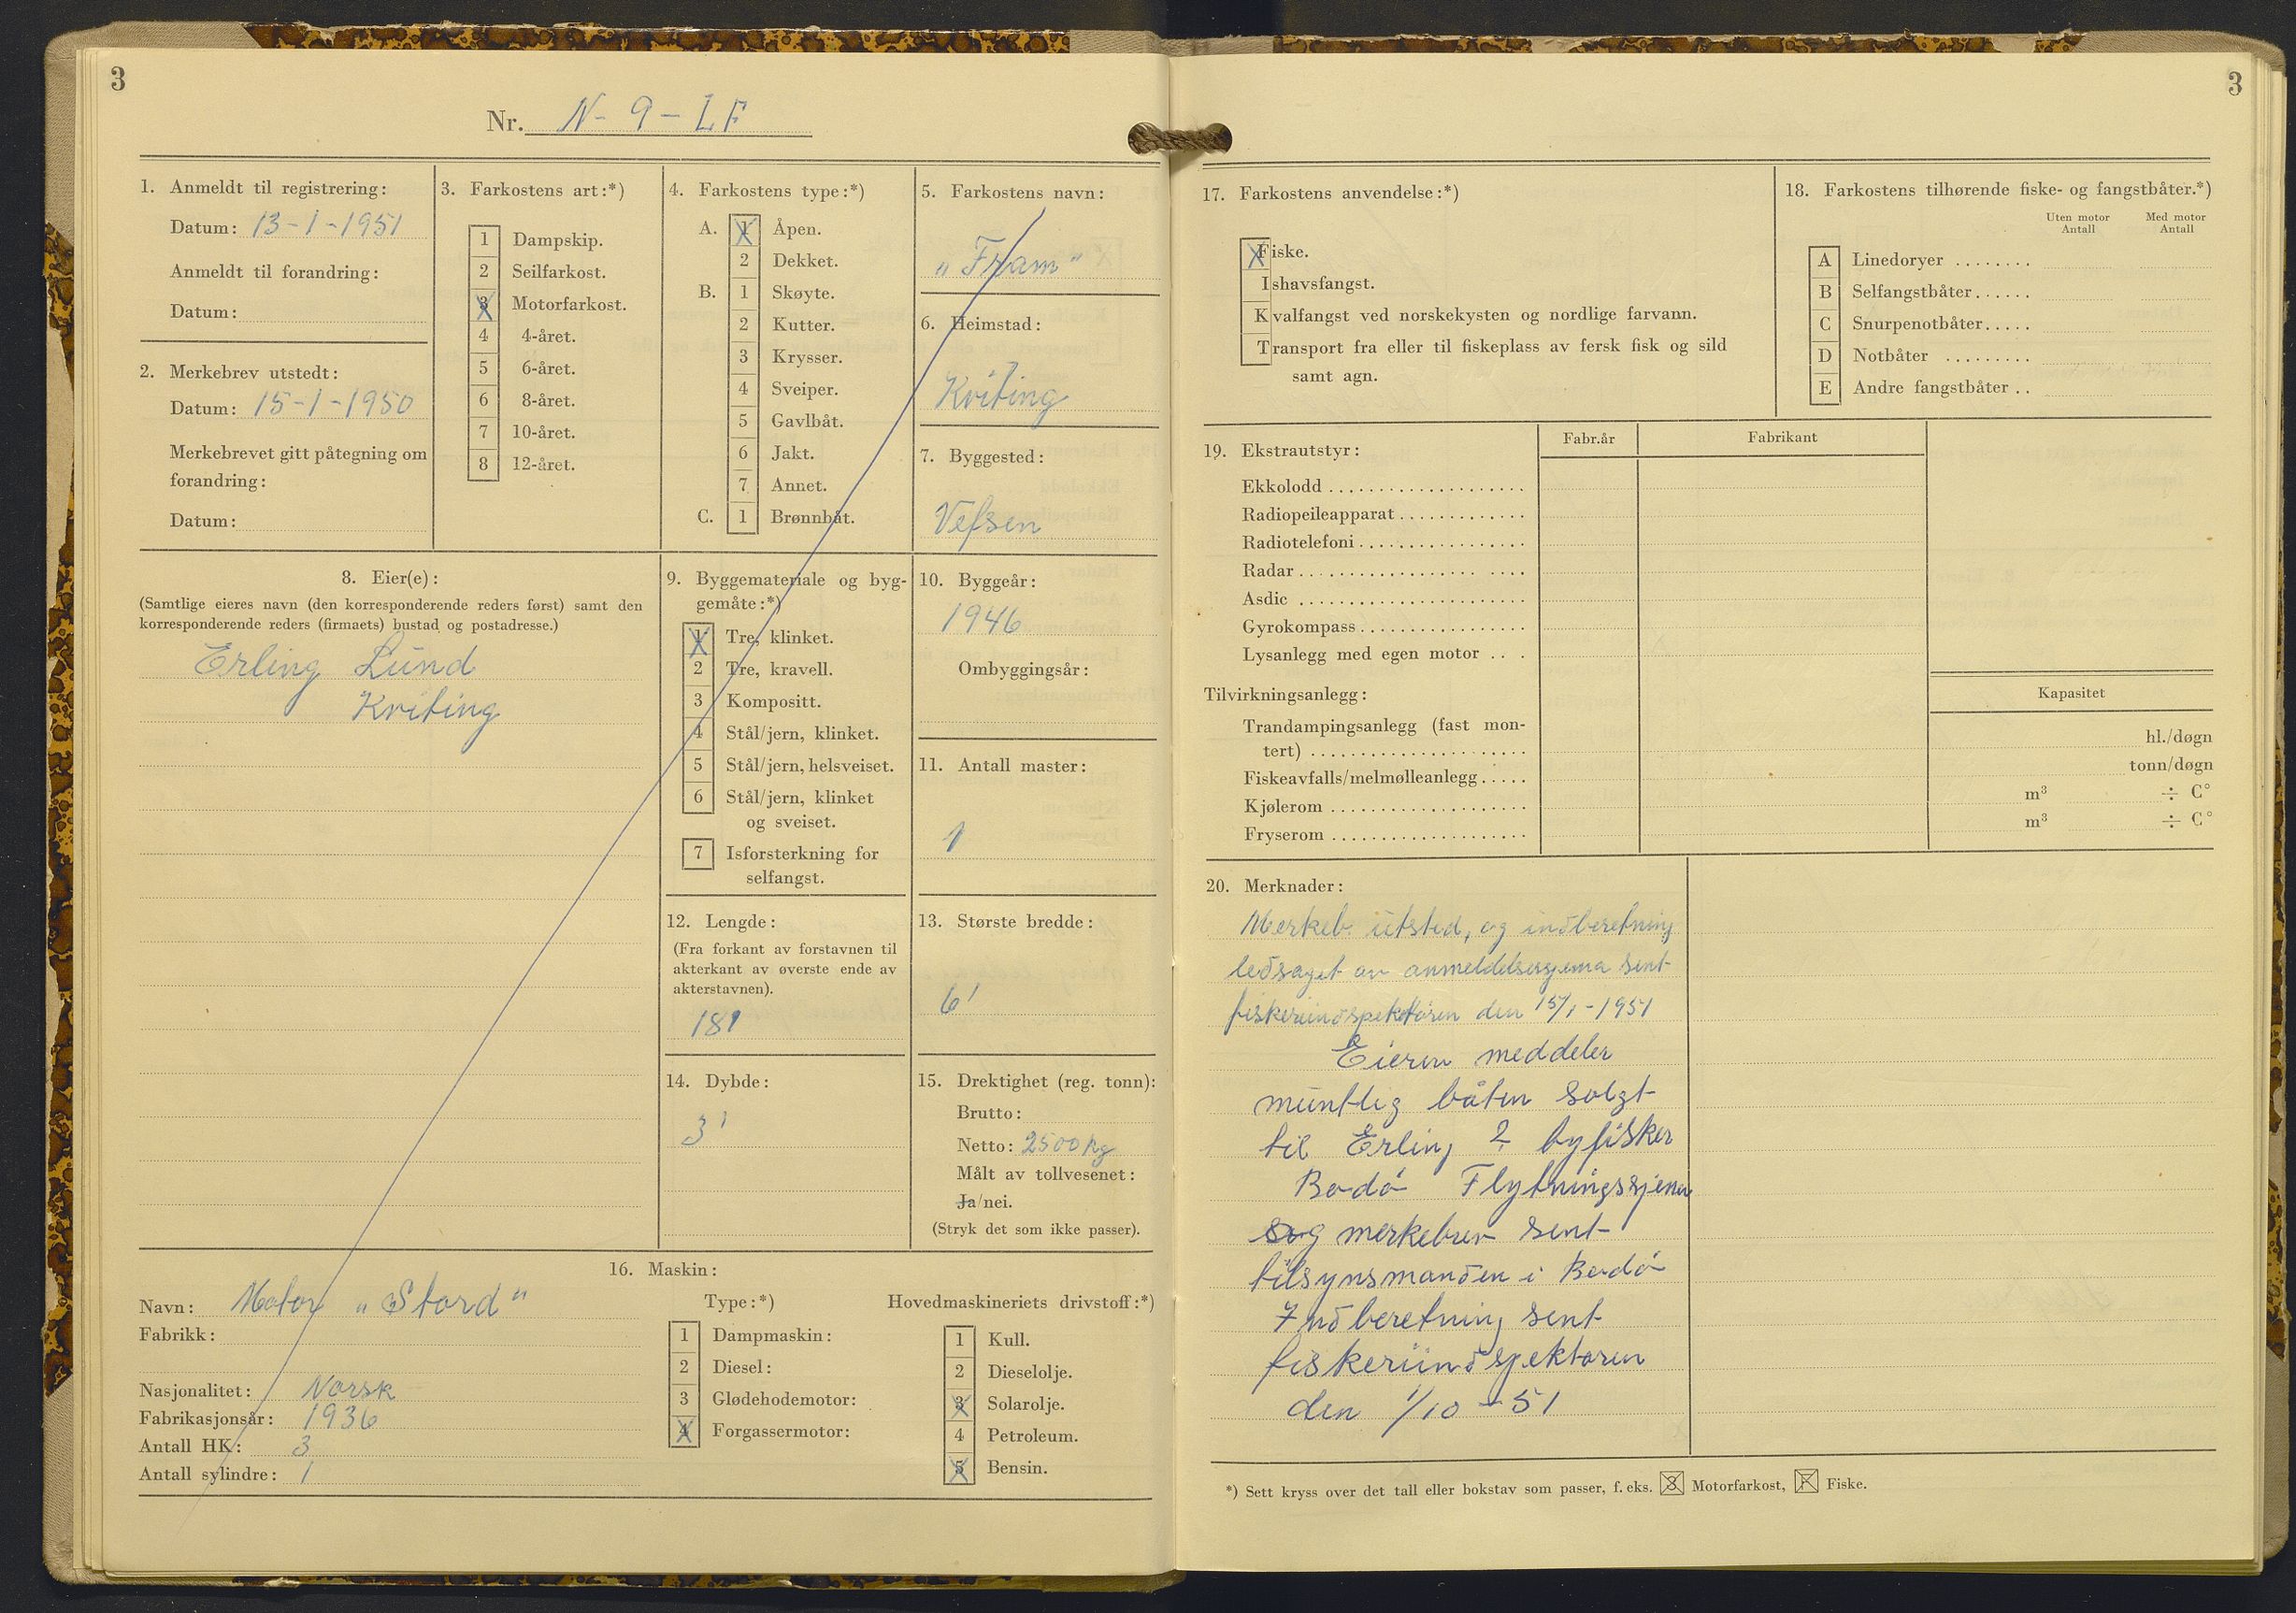 3
Nr. N-9-LF
1. Anmeldt til registrering:
Datum: 13-1-1951
Anmeldt til forandring:
Datum:
2. Merkebrev utstedt:
Datum: 15-1-1950
Merkebrevet gitt påtegning om
forandring:
Datum:
3. Farkostens art:*)
1 Dampskip.
2 Seilfarkost.
3 Motorfarkost.
4 4-året.
5 6-året.
6 8-året.
7 10-året.
8 12-året.
4. Farkostens type:*)
A. 1 Åpen.
2 Dekket.
B. 1 Skøyte.
2 Kutter.
3 Krysser.
4 Sveiper.
5 Gavlbåt.
6 Jakt.
7 Annet.
C. 1 Brønnbåt.
5. Farkostens navn:
„Fram"
6. Heimstad:
Kviting
7. Byggested:
Vefsen
8. Eier(e):
(Samtlige eieres navn (den korresponderende reders først) samt den
korresponderende reders (firmaets) bustad og postadresse.)
Erling Lund
Kviting
9. Byggemateriale og byg-
gemåte:*)
1 Tre, klinket.
2 Tre, kravell.
3 Kompositt.
4 Stål/jern, klinket.
5 Stål/jern, helsveiset.
6 Stål/jern, klinket
og sveiset.
7 Isforsterkning for
selfangst.
10. Byggeår:
1946
Ombyggingsår:
11. Antall master:
1
12. Lengde:
(Fra forkant av forstavnen til
akterkant av øverste ende av
akterstavnen).
18'
13. Største bredde:
6'
14. Dybde:
3'
15. Drektighet (reg. tonn):
Brutto:
Netto: 2500 kg
Målt av tollvesenet:
Ja/nei.
(Stryk det som ikke passer).
16. Maskin:
Navn: Motor „Stord"
Fabrikk:
Nasjonalitet: Norsk
Fabrikasjonsår: 1936
Antall HK: 3
Antall sylindre: 1
Type:*)
1 Dampmaskin:
2 Diesel:
3 Glødehodemotor:
4 Forgassermotor:
Hovedmaskineriets drivstoff:*)
1 Kull.
2 Dieselolje.
3 Solarolje.
4 Petroleum.
5 Bensin.
3
17. Farkostens anvendelse:*)
Fiske.
Ishavsfangst.
Kvalfangst ved norskekysten og nordlige farvann.
Transport fra eller til fiskeplass av fersk fisk og sild
samt agn.
18. Farkostens tilhørende fiske- og fangstbåter.*)
Uten motor Antall Med motor Antall
A Linedoryer ........
B Selfangstbåter......
C Snurpenotbåter.....
D Notbåter .........
E Andre fangstbåter ..
19. Ekstrautstyr:
Fabr.år Fabrikant
Ekkolodd
Radiopeileapparat
Radiotelefoni
Radar
Asdic
Gyrokompass
Lysanlegg med egen motor
Tilvirkningsanlegg:
Kapasitet
Trandampingsanlegg (fast mon-
tert) hl./døgn
Fiskeavfalls/melmølleanlegg tonn/døgn
Kjølerom m³ ÷ C°
Fryserom m³ ÷ C°
20. Merknader:
Merkeb. utsted, og indberetning
ledsaget av anmeldelsesskjema sent
fiskeriindspektøren den 15/1-1951
Eieren meddeler
muntlig båten solgt
til Erling ? byfisker
Bodó Flytningsskjema
og merkebrev sent
tilsynsmanden i Bodó
Indberetning sent
fiskeriindspektøren
den 1/10-51
*) Sett kryss over det tall eller bokstav som passer, f. eks. 3 Motorfarkost, F Fiske.